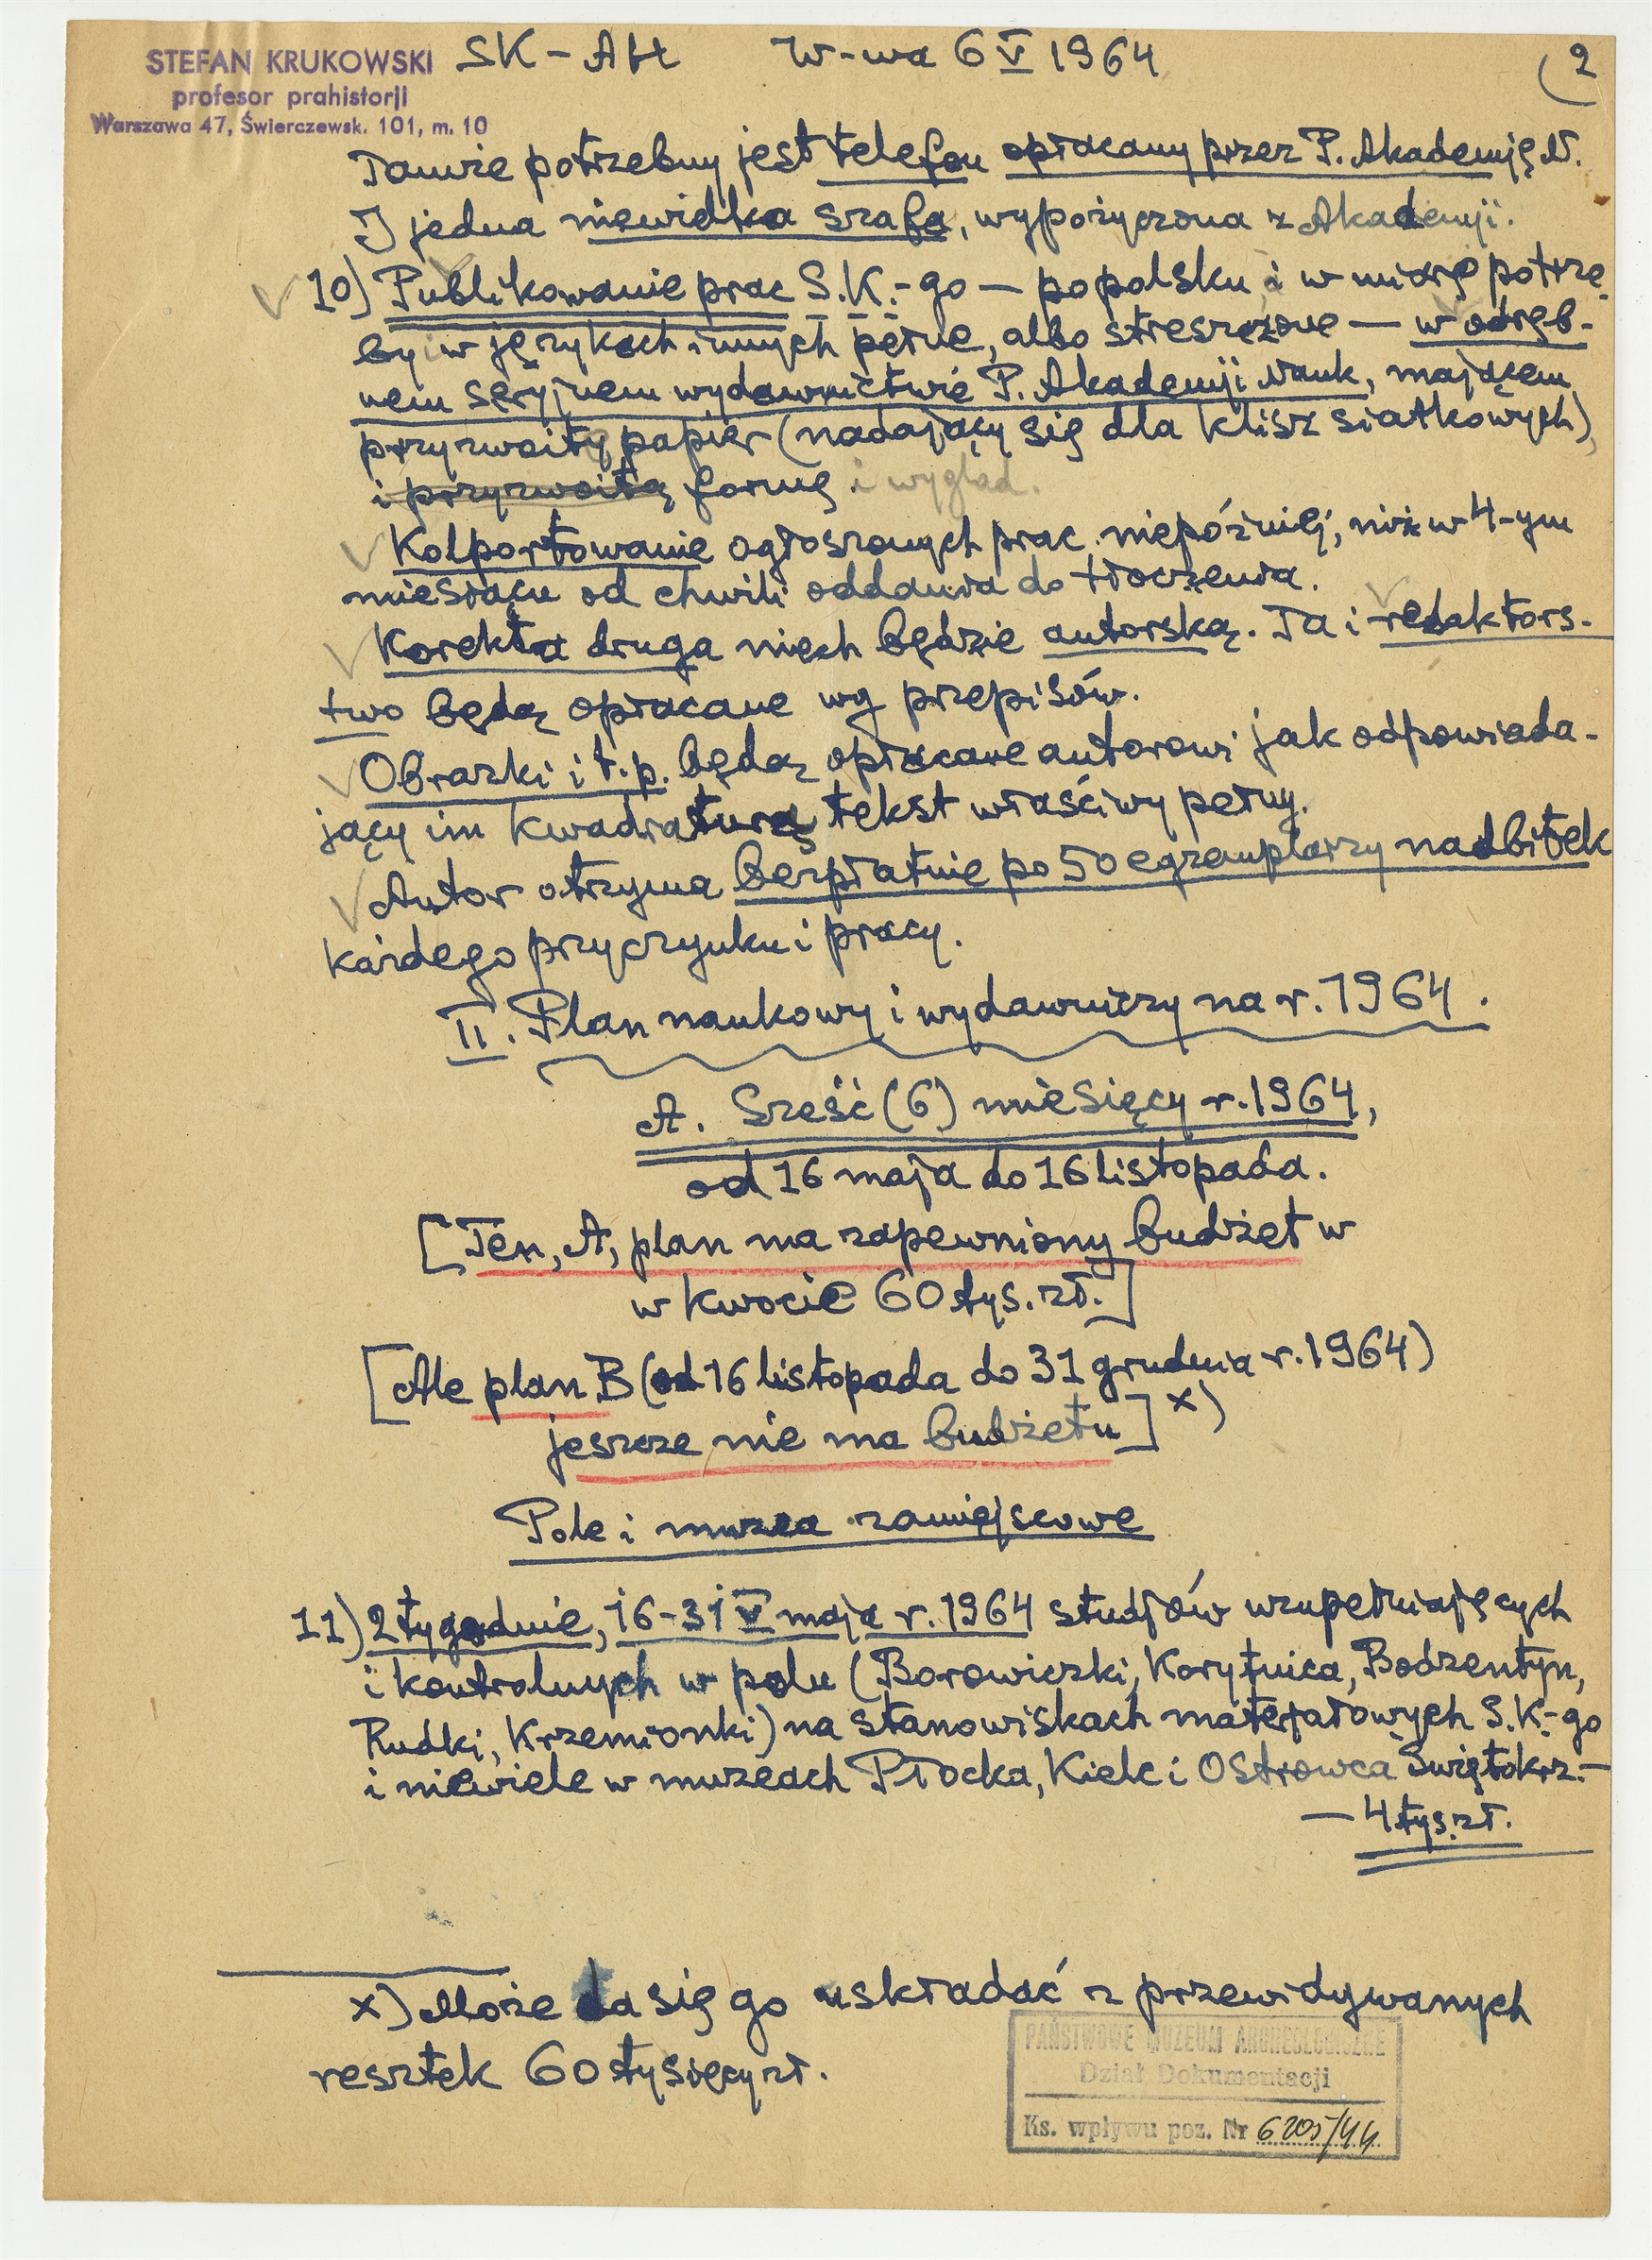 STEFAN KRUKOWSKI
profesor prahistorji
Warszawa 47, Świerczewsk. 101, m. 10
SK – AH W-wa 6 V 1964
(2
Tamże potrzebny jest telefon opłacany przez P. Akademję N.
I jedna niewielka szafa, wypożyczona z Akademji.
10) Publikowanie prac S.K.-go — po polsku i w miarę potrze-
by i w językach innych pełne, albo streszczone — w odręb-
nem seryjnem wydawnictwie P. Akademji Nauk, mającem
przyzwoity papier (nadający się dla klisz siatkowych),
i przyzwoitą formę i wygląd.
Kolportowanie ogłoszonych prac niepóźniej, niż w 4-ym
miesiącu od chwili oddania do tłoczenia.
Korekta druga niech będzie autorską. Ta i redaktors-
two będą opłacane wg przepisów.
Obrazki i t.p. będą opłacane autorowi jak odpowiada-
jący im kwadraturą tekst właściwy pełny.
Autor otrzyma bezpłatnie po 50 egzemplarzy nadbitek
każdego przyczynku i pracy.
II. Plan naukowy i wydawniczy na r. 1964.
A. Sześć (6) miesięcy r. 1964,
od 16 maja do 16 listopada.
[Ten, A, plan ma zapewniony budżet w
w kwocie 60 tys. zł.]
[Ale plan B (od 16 listopada do 31 grudnia r. 1964)
jeszcze nie ma budżetu] x)
Pole i muzea zamiejscowe
11) 2 tygodnie, 16–31 V maja r. 1964 studjów uzupełniających
i kontrolnych w polu (Borowiczki, Korytnica, Bodzentyn,
Rudki, Krzemionki) na stanowiskach materjałowych S.K.-go
i niewiele w muzeach Płocka, Kielc i Ostrowca Świętokrz.—
— 4 tys. zł.
x) Może da się go uskładać z przewidywanych
resztek 60 tysięcy zł.
PAŃSTWOWE MUZEUM ARCHEOLOGICZNE
Dział Dokumentacji
Ks. wpływu poz. Nr 6205/44